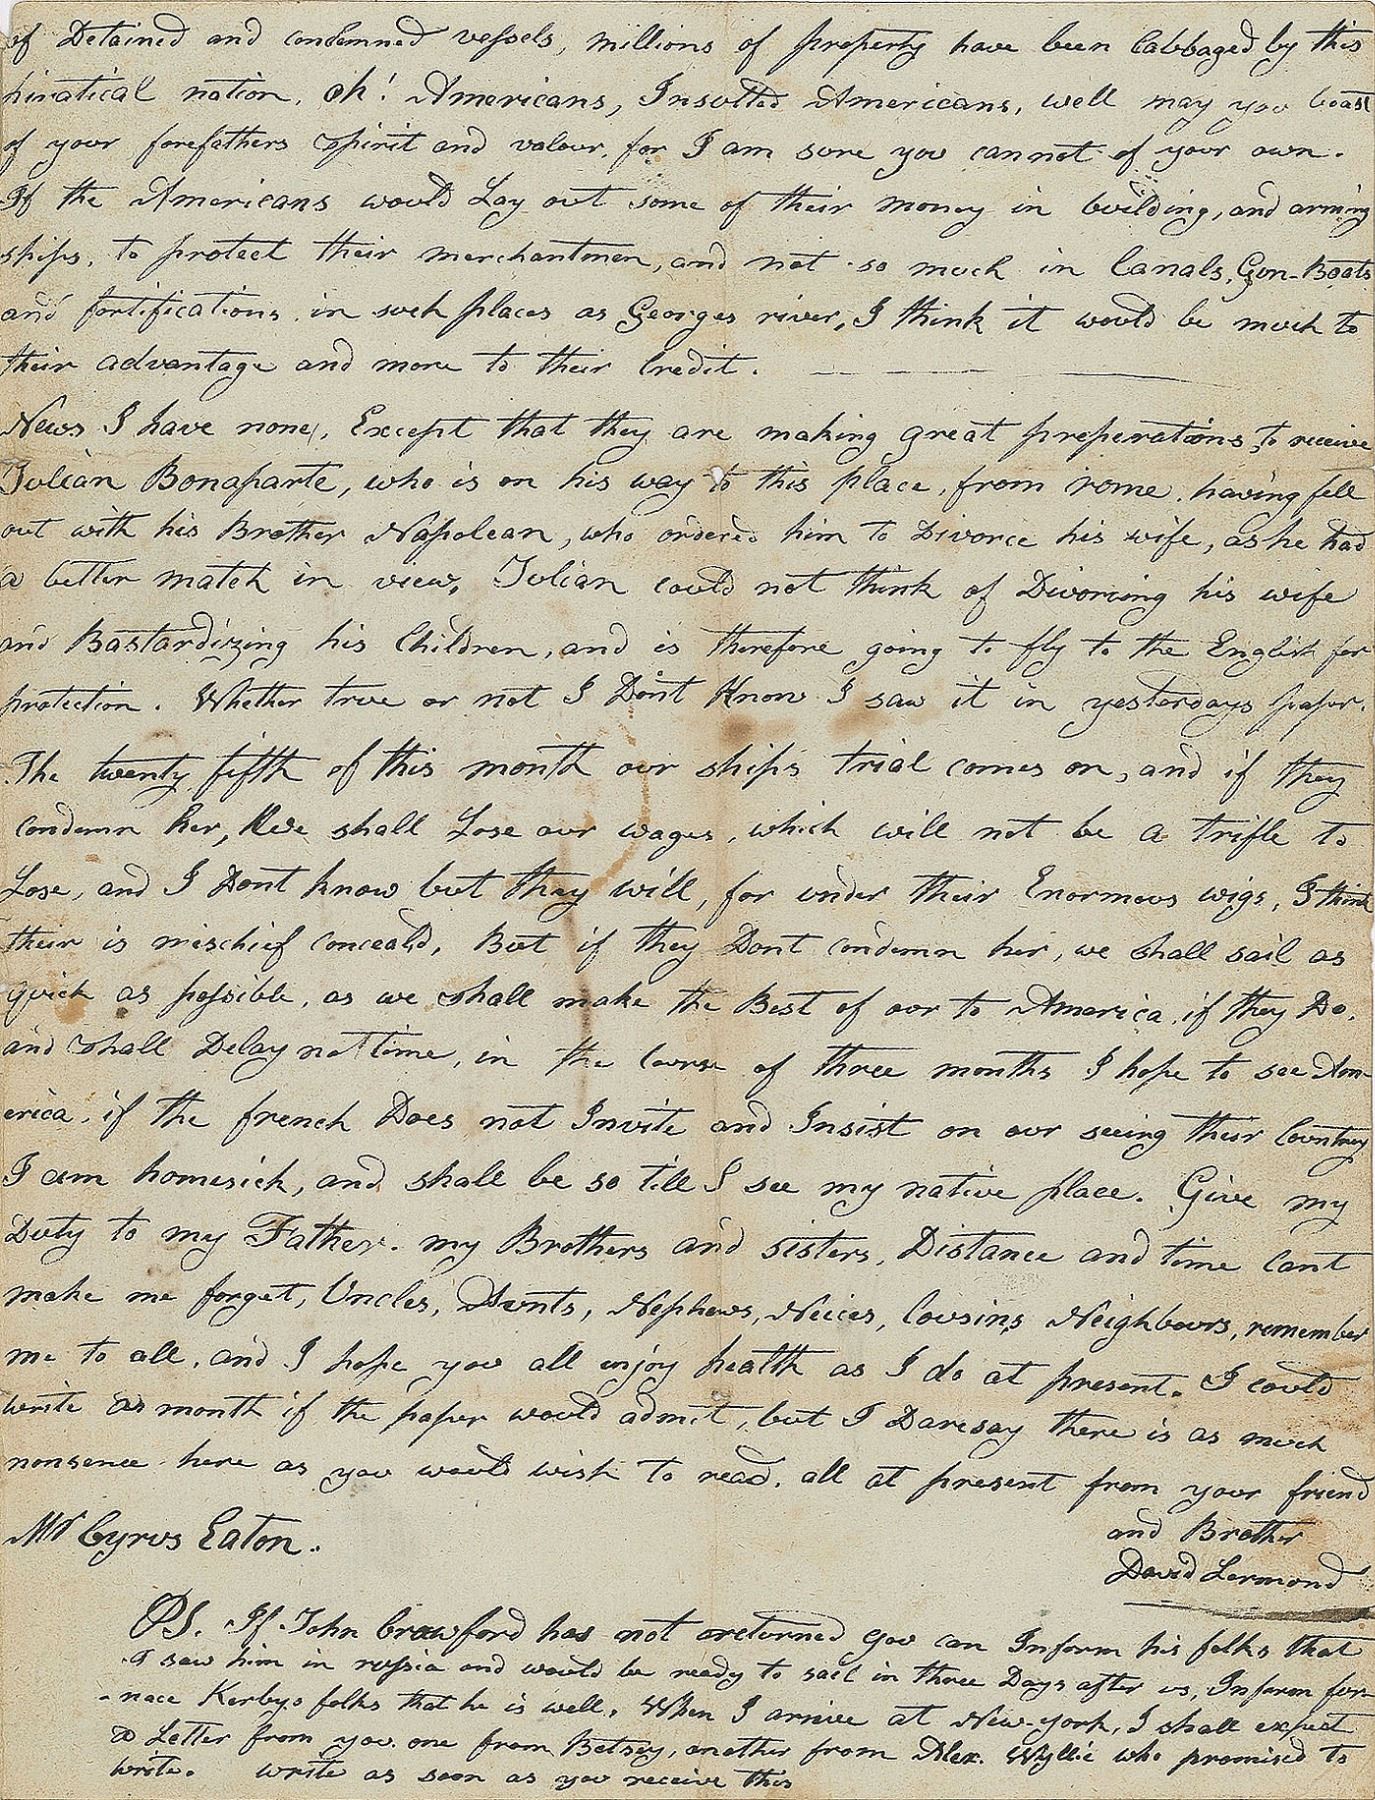 of Detained and condemned vessels, millions of property have been Cabbaged by this
piratical nation. oh! Americans, Insulted Americans, well may you boast
of your forefathers spirit and valour, for I am sure you cannot of your own.
If the Americans would Lay out some of their money in building, and arming
ships, to protect their merchantmen, and not so much in Canals, Gun-Boats
and fortifications in such places as Georges river, I think it would be much to
their advantage and more to their Credit.
News I have none, Except that they are making great preperations, to receive
Julian Bonaparte, who is on his way to this place, from rome, having fell
out with his Brother Napolean, who ordered him to Divorce his wife, as he had
a better match in view, Julian could not think of Divorcing his wife
and Bastardizing his Children, and is therefore going to fly to the English for
protection. Whether true or not I Dont Know I saw it in yesterdays paper.
The twenty fifth of this month our ships trial comes on, and if they
condemn her, We shall Lose our wages, which will not be a trifle to
Lose, and I Dont know but they will, for under their Enormous wigs, I think
their is mischief conceald, But if they Dont condemn her, we shall sail as
quick as possible, as we shall make the Best of our to America, if they Do.
and shall Delay not time, in the Course of three months I hope to see Am-
erica, if the french Does not Invite and Insist on our seeing their Country
I am homesick, and shall be so till I see my native place. Give my
Duty to my Father. my Brothers and sisters, Distance and time Cant
make me forget, Uncles, Aunts, Nephews, Neices, Cousins, Neighbours, remember
me to all, and I hope you all enjoy health as I do at present. I could
write a month if the paper would admit, but I Daresay there is as much
nonsence here as you would wish to read. all at present from your friend
and Brother
Mr Cyrus Eaton.
David Lermond
PS. If John Crawford has not returned you can Inform his folks that
I saw him in russia and would be ready to sail in three Days after us, Inform for-
-nace Kerbys folks that he is well. When I arrive at New-York, I shall expect
a Letter from you. one from Betsey, another from Alex. Wyllie who promised to
write. write as soon as you receive this